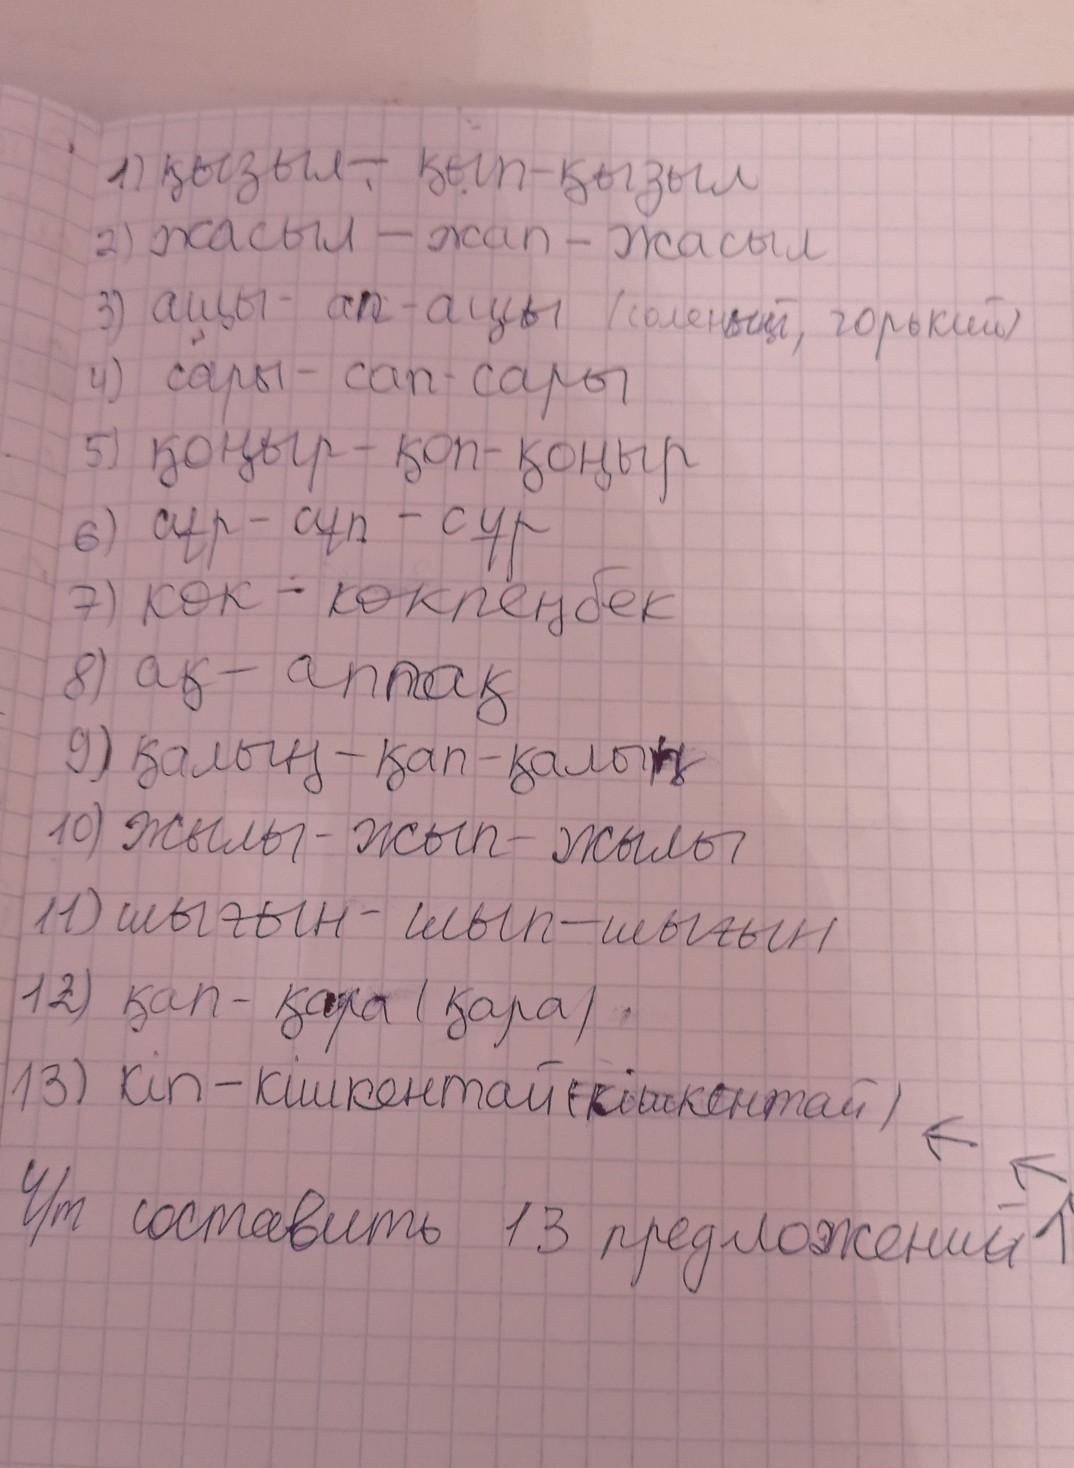 1) қызыл - қып-қызыл
2) жасыл - жап - жасыл
3) ащы - ап-ащы (соленый, горький)
4) сары - сап-сары
5) қоңыр - қоп-қоңыр
6) сұр - сұп - сұр
7) көк - көкпеңбек
8) ақ - аппақ
9) қалың - қап-қалың
10) жылы - жып- жылы
11) шығын - шып-шығын
12) қап - қара (қара)
13) кіп - кішкентай (кішкентай)
Ү/т составить 13 предложений